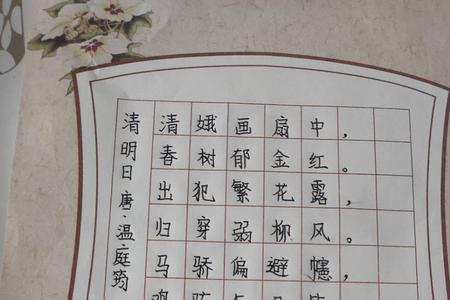 清明日 唐·温庭筠
清娥画扇中，
春树郁金红。
出犯繁花露，
归穿弱柳风。
马骄偏避幰，